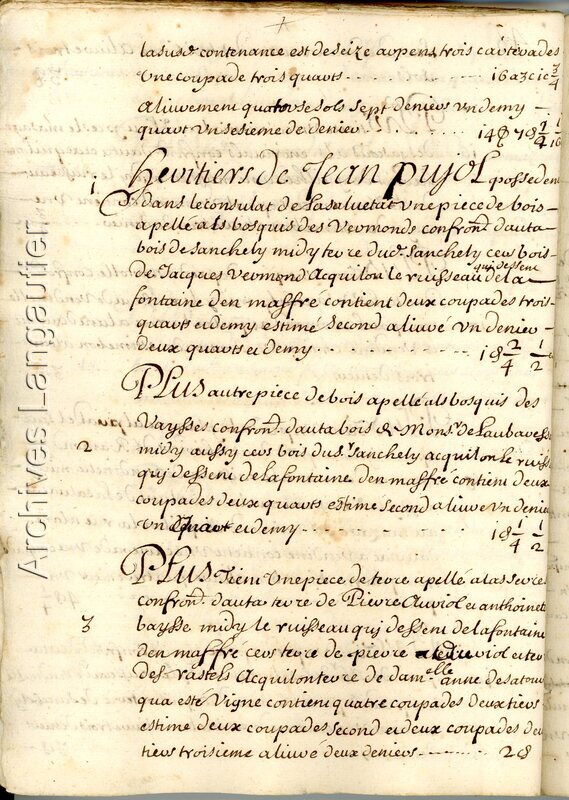 lasusd contenance est de seize arpens trois carterades
une coupade trois quarts - - - - - 16a3c1c 3/4
aliurement quatorse sols sept deniers un demy
quart un sesieme de denier . . . . . 14s 7d 1/4 1/16
1 Heritiers de Jean pujol possedent
dans le consulat de lasalvetat une piece de bois
apellé als bosquis des Vermonds confrond d'auta
bois de sanchely midy terre dud sanchely cers bois
de Jacques Vermond Acquilon le ruisseau qui dessent de la
fontaine den maffre contient deux coupades trois
quarts et demy estimé second aliuré un denier
deux quarts et demy - - - - - 1d 2/4 1/2
PLUS autre piece de bois apellé als bosquis des
Vaysses confrond d'auta bois de Monsr de Laubaresse
2 midy aussy cers bois dusr sanchely acquilon le ruiss
qui dessent de la fontaine den maffré contient deux
coupades deux quarts estimé second aliuré un denier
un quart et demy - - - - - 1d 1/4 1/2
PLUS Tient une piece de terre apellé a las serre
confrond d'auta terre de Pierre Auriol et anthoinete
3 baysse midy le ruisseau qui dessent de la fontaine
den maffré cers terre de pierre auriol et ter
des rastels Acquilon terre de damelle anne de satour
qua esté Vigne contient quatre coupades deux tiers
estimé deux coupades second et deux coupades deu
tiers troisieme aliuré deux deniers - - - - - 2d
Archives Langautier